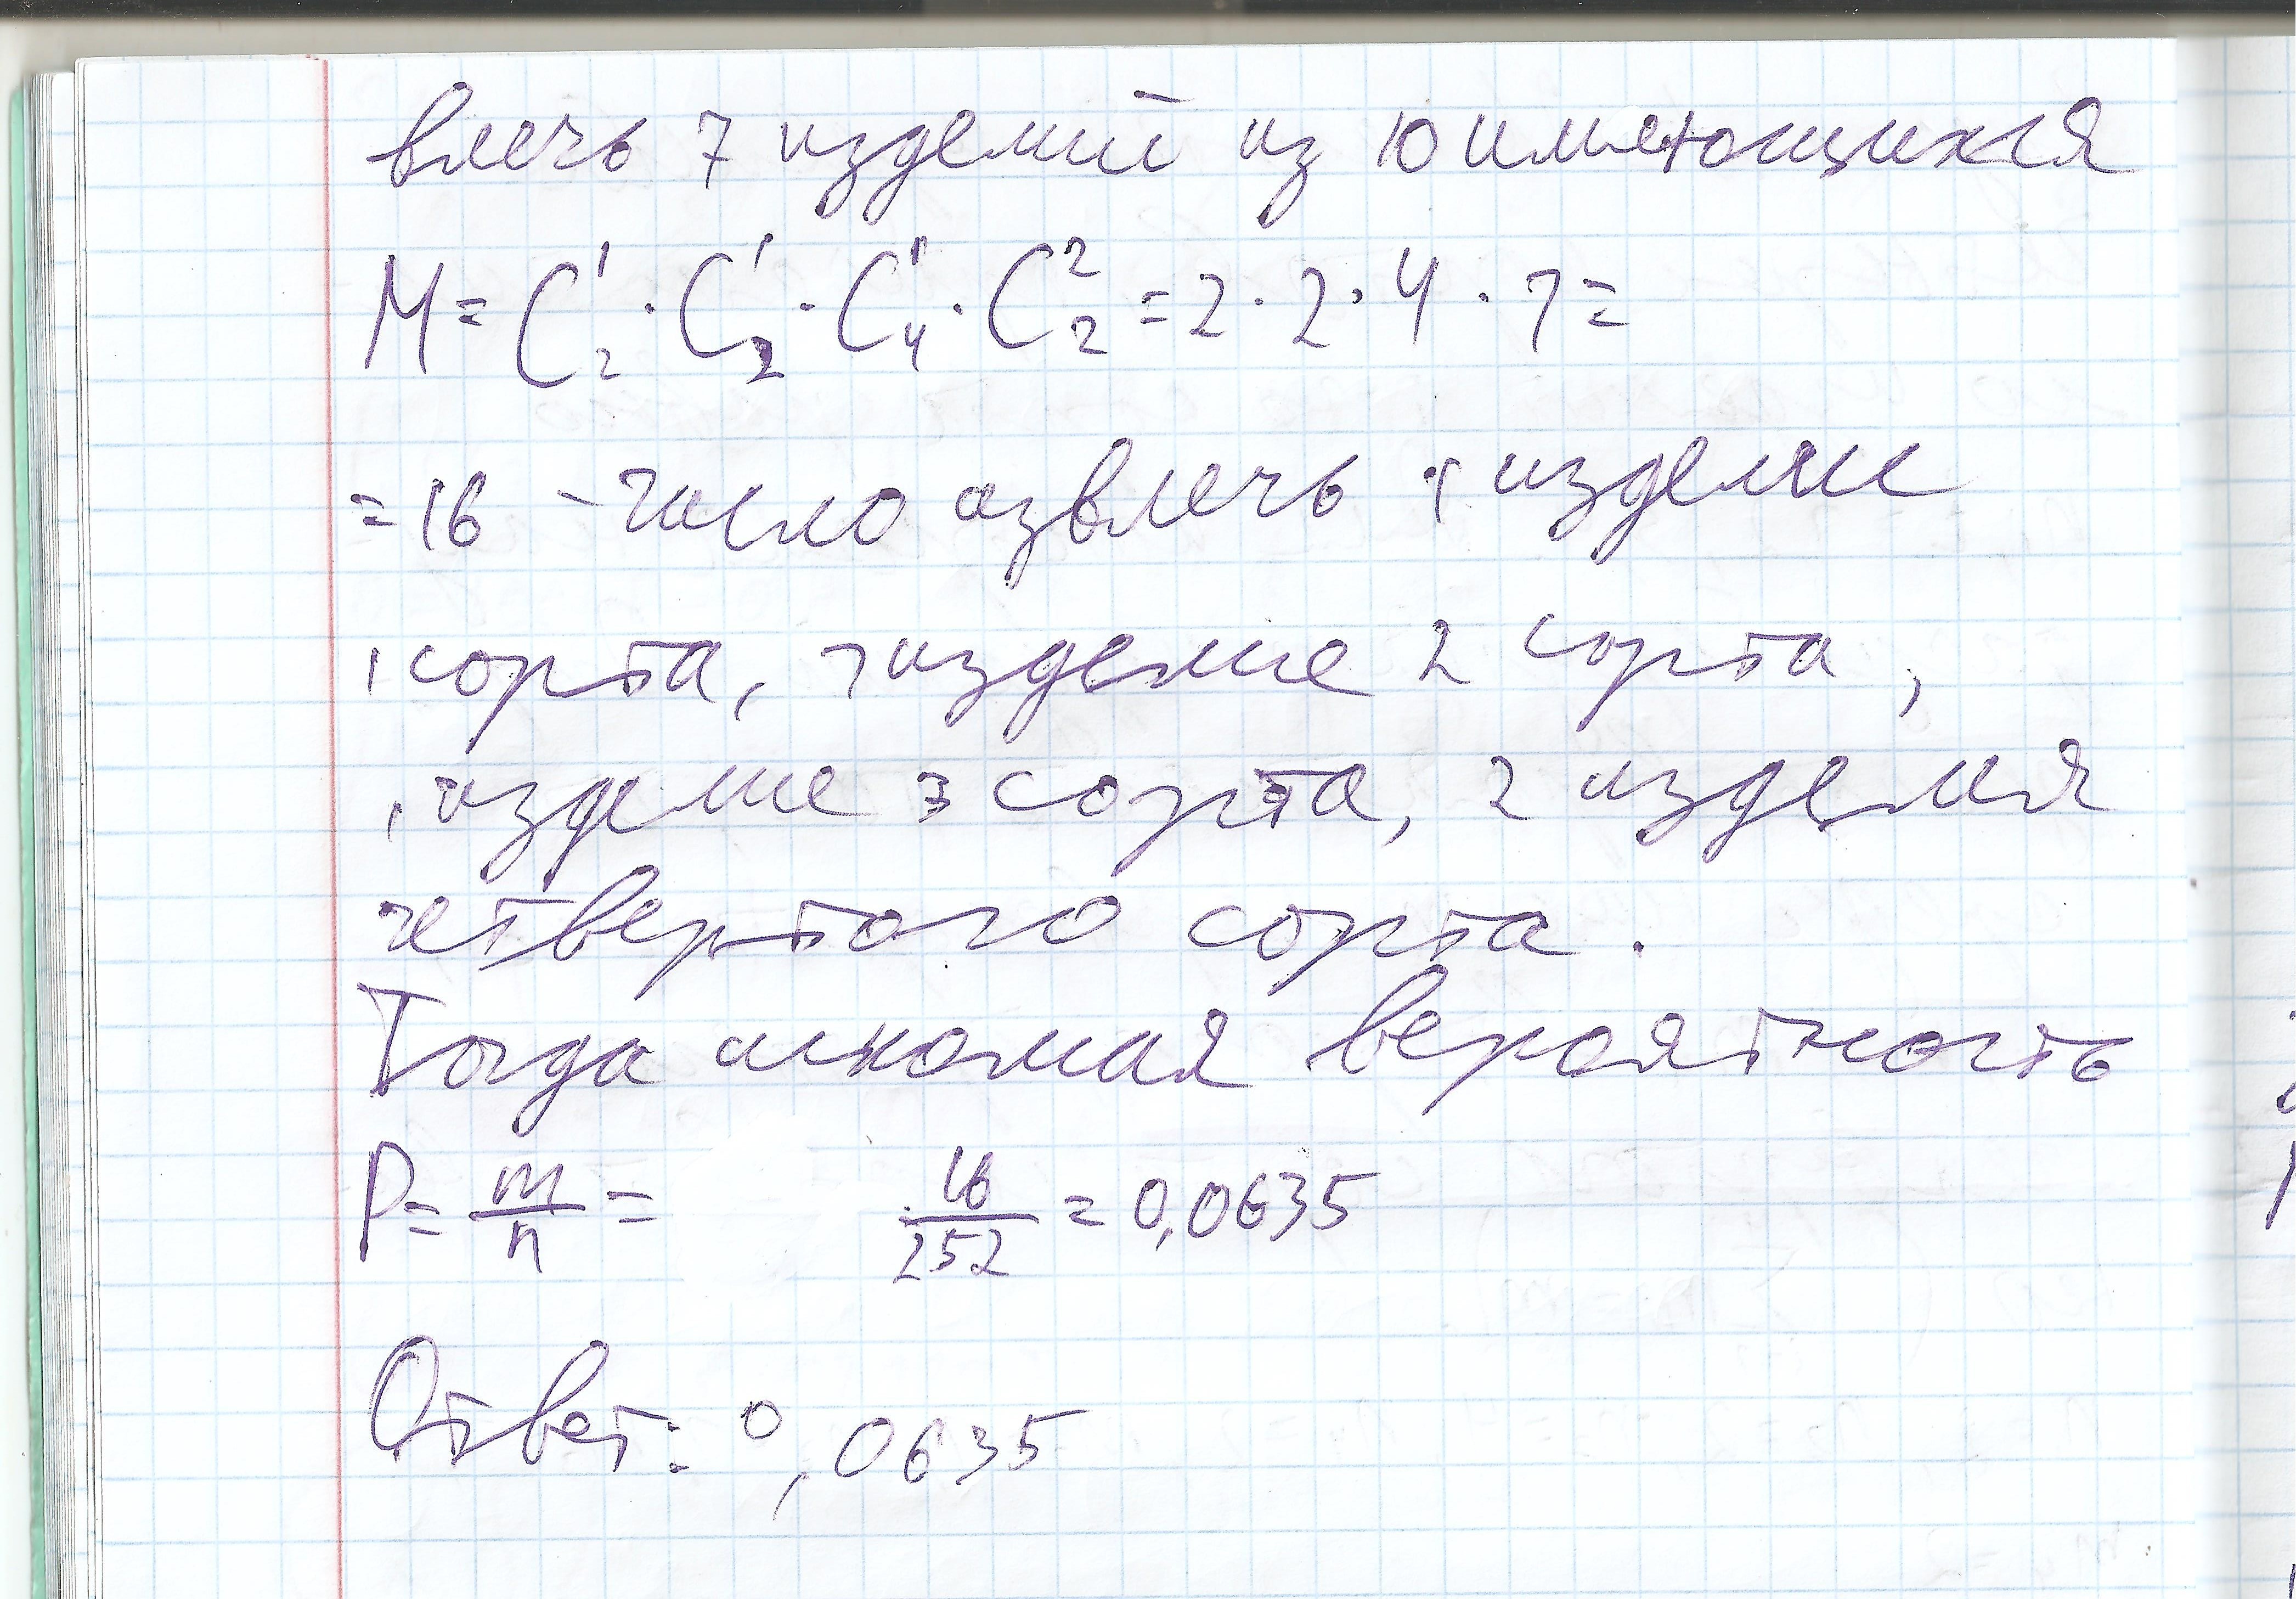 влечь 7 изделий из 10 имеющихся
M = C₂¹ · C₂¹ · C₄¹ · C₂² = 2 · 2 · 4 · 1 =
= 16 - число извлечь 1 изделие
1 сорта, 1 изделие 2 сорта,
1 изделие 3 сорта, 2 изделия
четвертого сорта.
Тогда искомая вероятность
P = m/n = 16/252 = 0,0635
Ответ: 0,0635